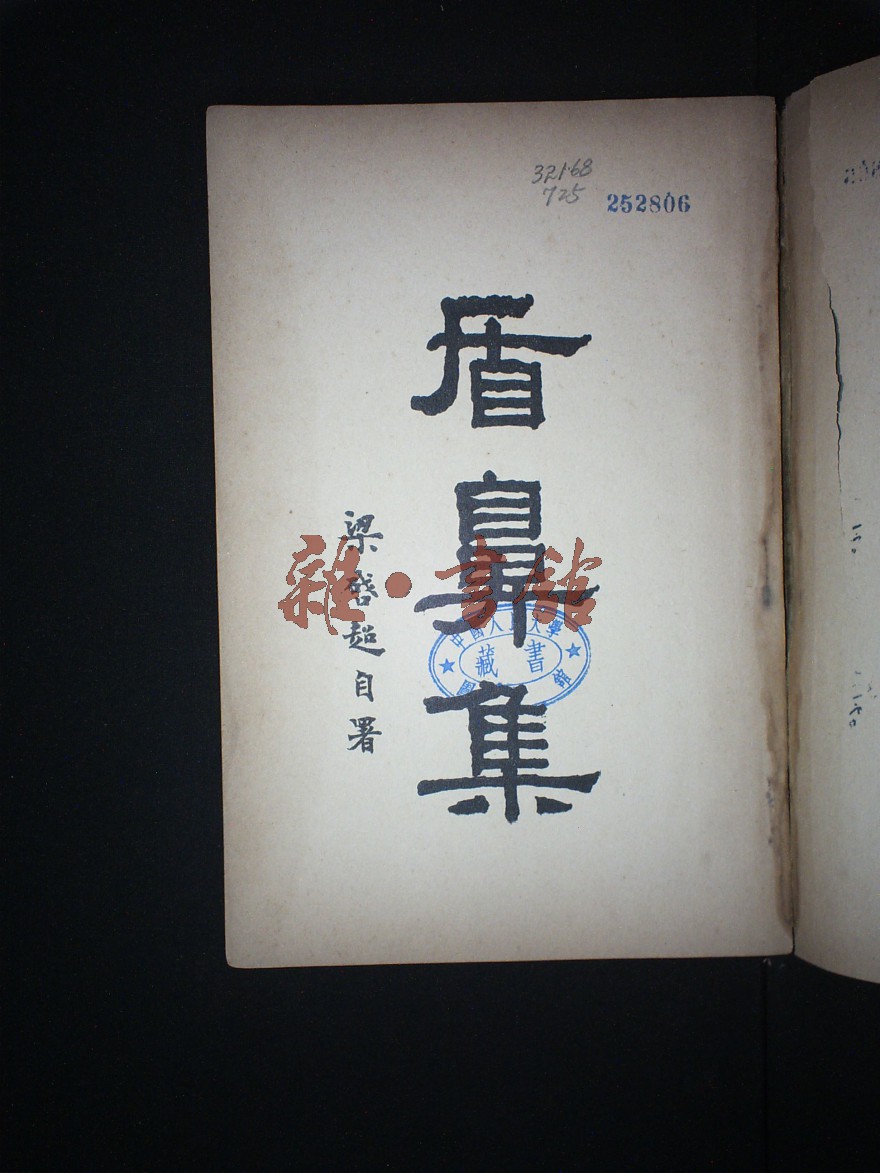 321.68
725
252806
盾鼻集
梁啓超自署
雜·書館
中國人民大學
藏書